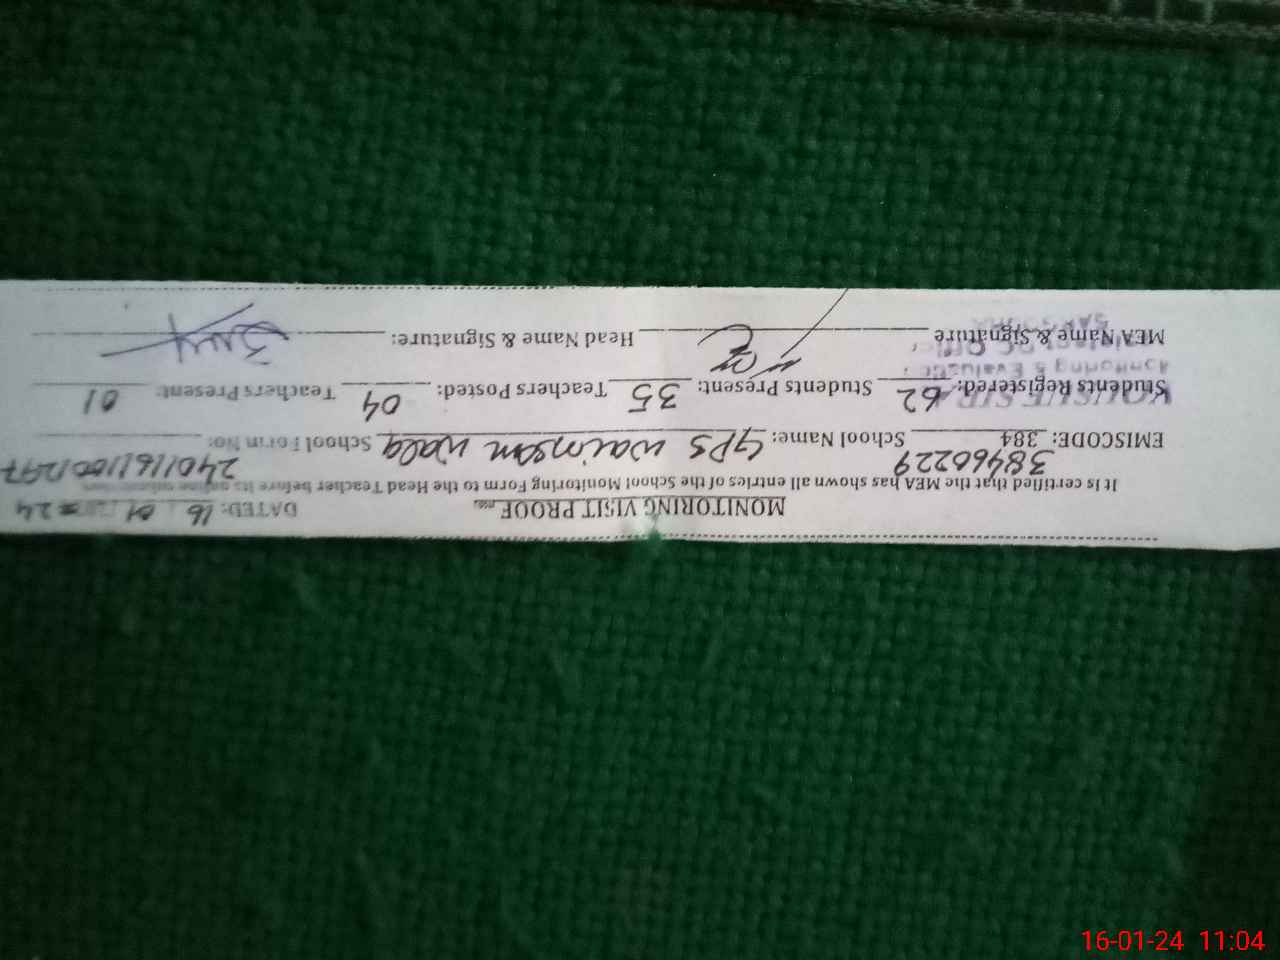 MONITORING VISIT PROOF
DATED: 16 01 24
It is certified that the MEA has shown all entries of the School Monitoring Form to the Head Teacher before its online submission
EMISCODE: 384 38460229 School Name: GPS wainsan wala School Form No: 24011611001297
Students Registered: 62 Students Present: 35 Teachers Posted: 04 Teachers Present: 01
MEA Name & Signature Head Name & Signature:
Monitoring & Evaluat
16-01-24 11:04